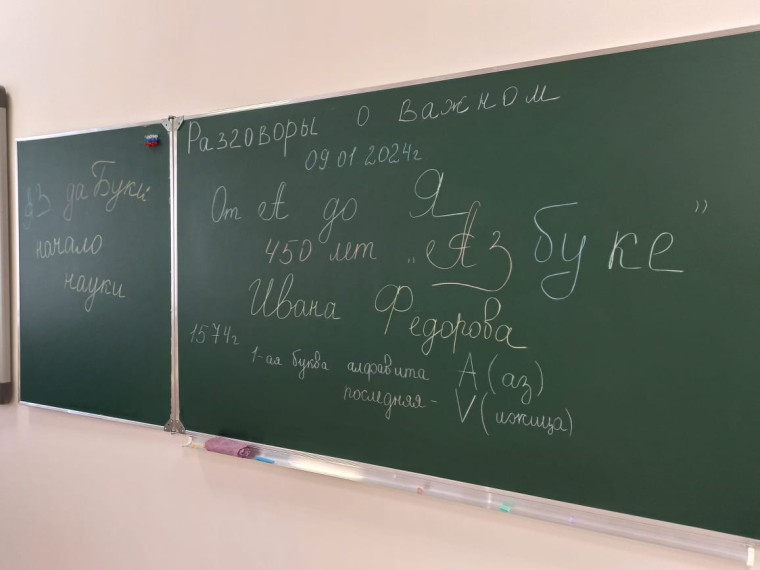 Аз да Буки
начало
науки
Разговоры о важном
09.01.2024г
От А до Я
450 лет „Азбуке”
Ивана Федорова
1574г
1-ая буква алфавита А (аз)
последняя - V (ижица)